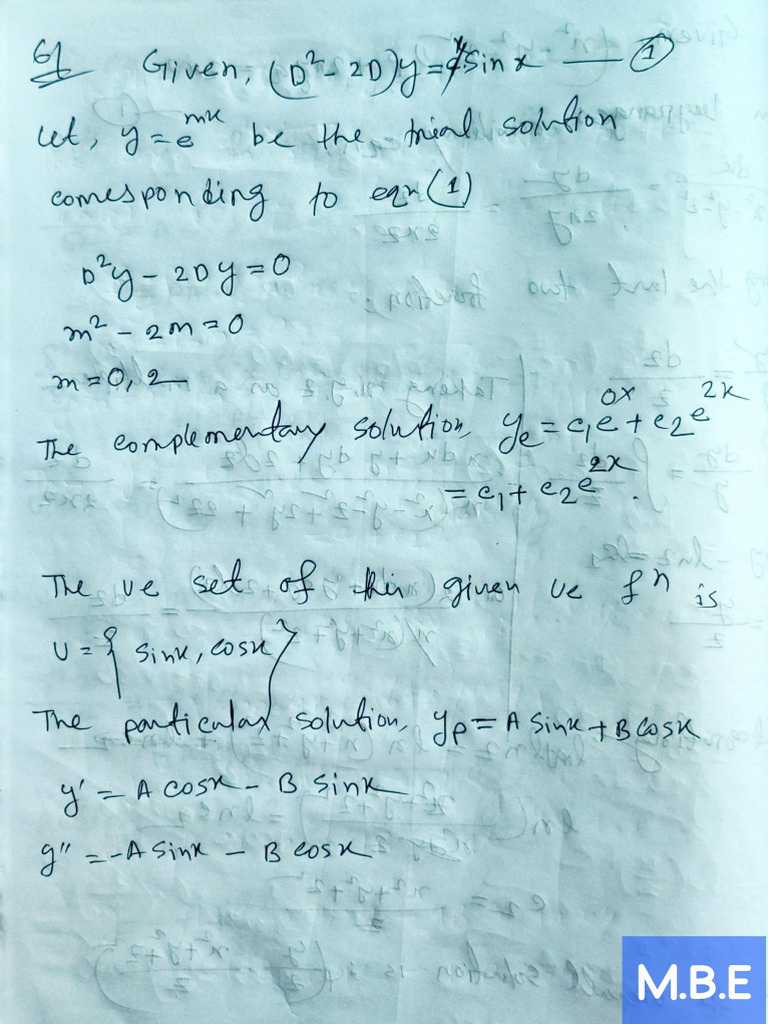 6)
Given, (D² - 2D)y = sin x — ①
Let, y = e^mx be the trial solution
corresponding to eqn (1)
D²y - 2Dy = 0
m² - 2m = 0
m = 0, 2
The complementary solution, y_c = c₁e^0x + c₂e^2x
= c₁ + c₂e^2x.
The UC set of this given UC fⁿ is
U = { sinx, cosx }
The particular solution, y_p = A sinx + B cosx
y' = A cosx - B sinx
y'' = -A sinx - B cosx
M.B.E